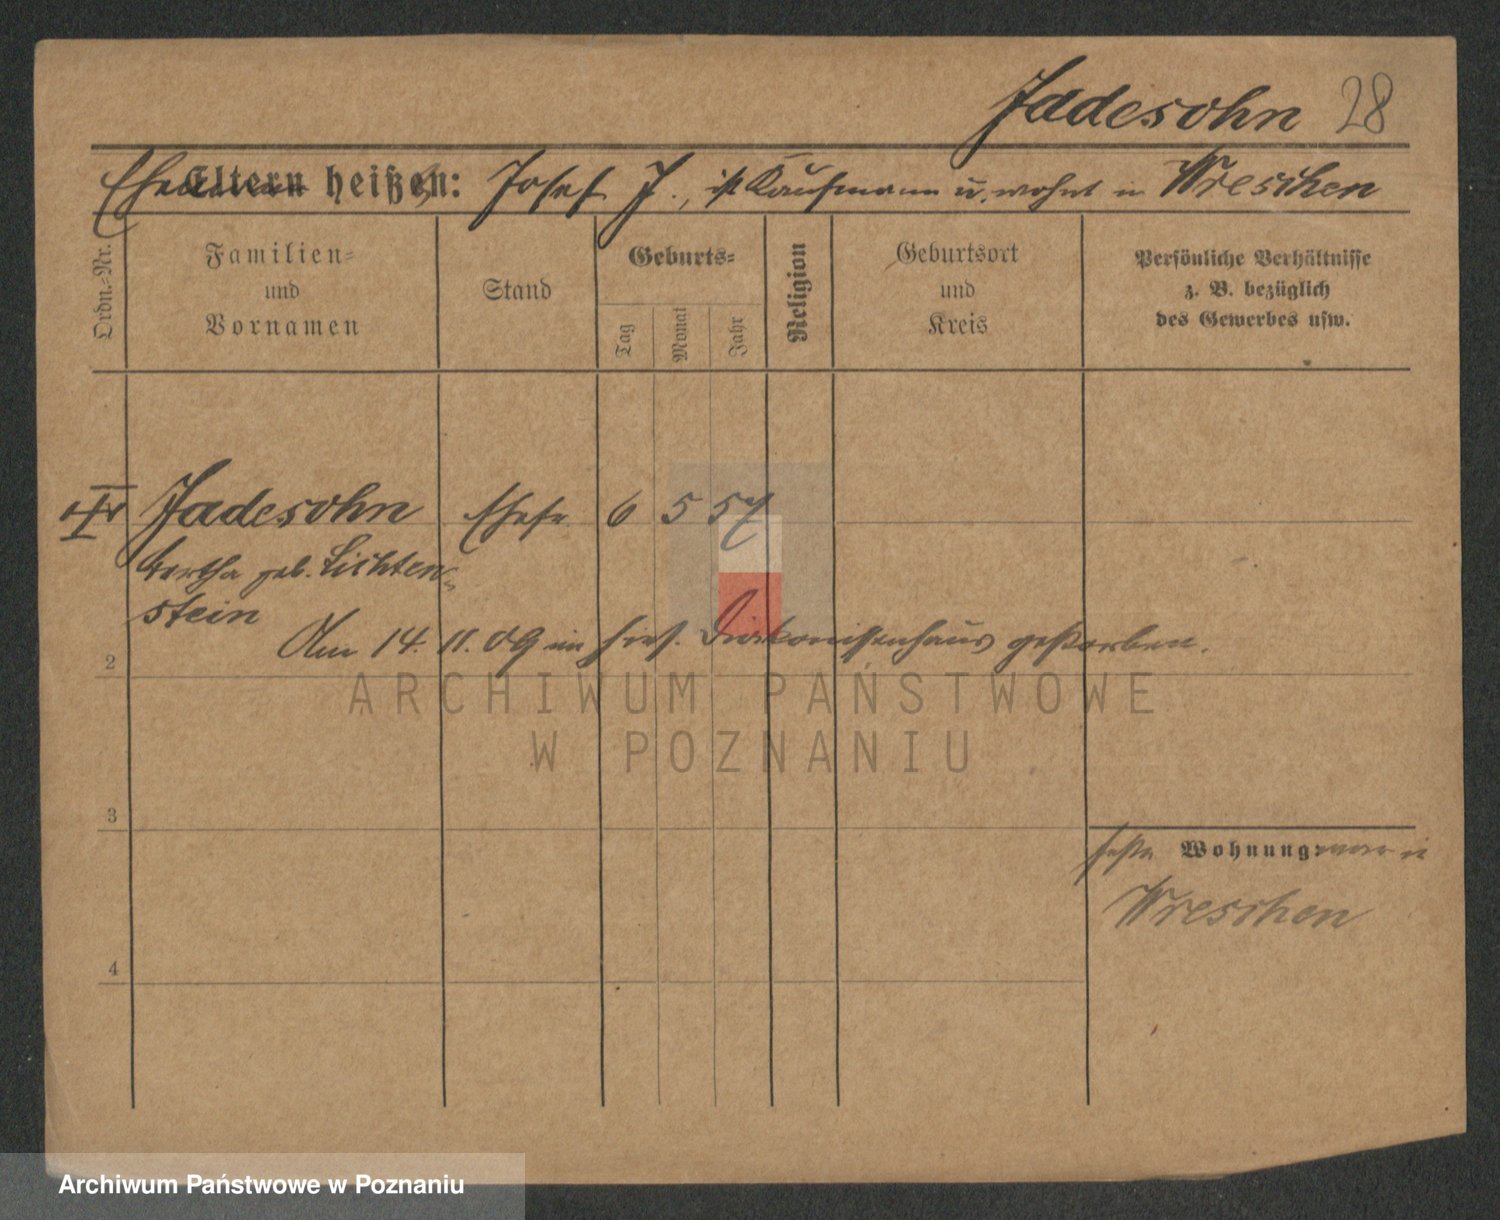 Jadesohn 28
Ehemann Eltern heißen: Josef J., ist Kaufmann u. wohnt in Wreschen
Ordn.-Nr.
Familien-
und
Vornamen
Stand
Geburts-
Tag
Monat
Jahr
Religion
Geburtsort
und
Kreis
Persönliche Verhältnisse
z. B. bezüglich
des Gewerbes usw.
Jadesohn Ehefr. 6 5 57
Bertha geb. Lichten-
stein
Am 14. 11. 09 im hies. Diakonissenhaus gestorben.
2
ARCHIWUM PAŃSTWOWE
W POZNANIU
3
feste Wohnung: war in
Wreschen
4
Archiwum Państwowe w Poznaniu